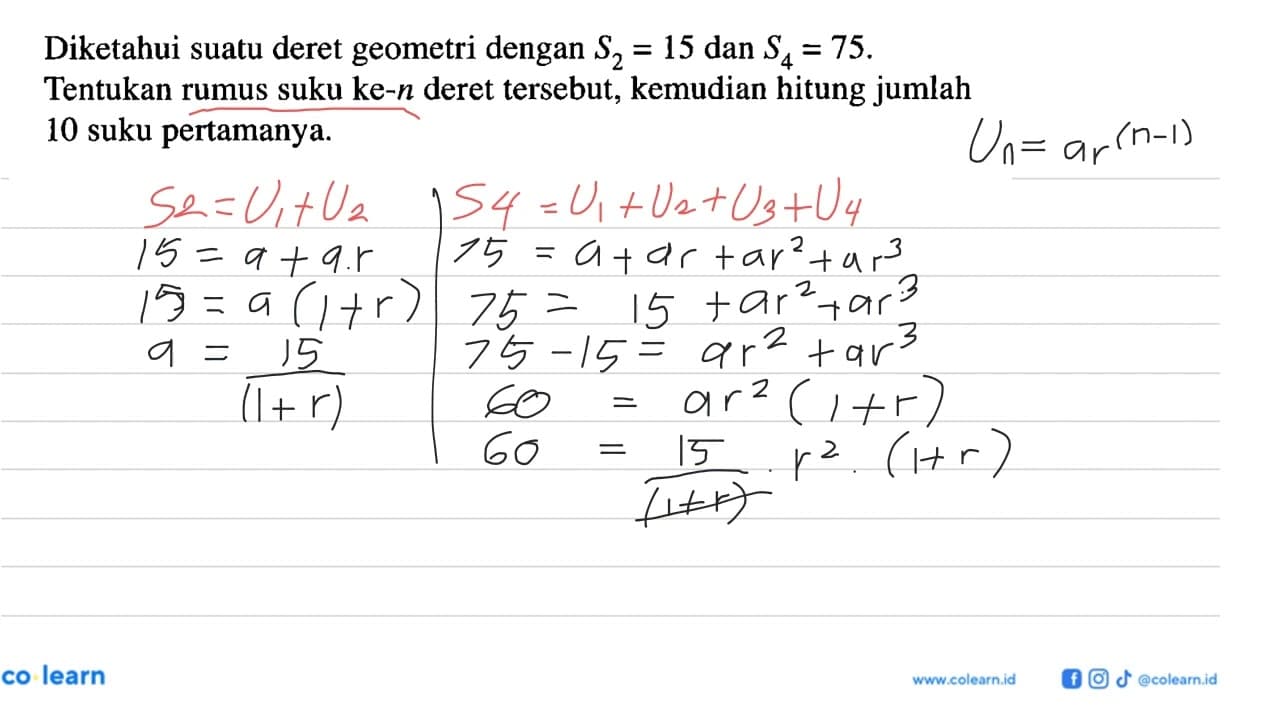 Diketahui suatu deret geometri dengan S₂ = 15 dan S₄ = 75.
Tentukan rumus suku ke-n deret tersebut, kemudian hitung jumlah
10 suku pertamanya.
Uₙ = ar^(n-1)
S2 = U₁ + U₂
15 = a + a.r
15 = a (1+r)
a = 15/(1+r)
S4 = U₁ + U₂ + U₃ + U₄
75 = a + ar + ar² + ar³
75 = 15 + ar² + ar³
75 - 15 = ar² + ar³
60 = ar² (1+r)
60 = 15/(1+r) . r² . (1+r)
co learn
www.colearn.id
@colearn.id